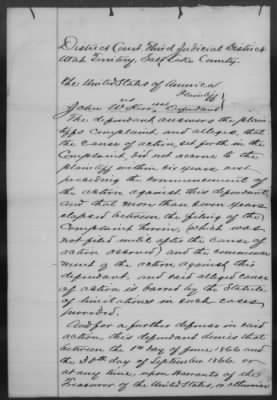 District Court, Third Judicial District
Utah Territory, Salt Lake County.
The United States of America
Plaintiff
vs
John W. Kerr Defendant
The defendant answers the plain-
tiffs Complaint, and alleges, that
the cause of action, set forth in the
Complaint, did not accrue to the
plaintiff within six years next
preceding the commencement of
the action against this defendant,
and that more than seven years
elapsed between the filing of the
Complaint herein, (which was
not filed until after the cause of
action accrued) and the commence-
ment of the action against this
defendant, and said alleged cause
of action is barred by the Statute
of limitations in such cases
provided.
And for a further defense in said
action, this defendant denies that
between the 1st day of June 1866 and
the 30th day of September 1866, or
at any time, upon Warrants of the
Treasurer of the United States, or otherwise